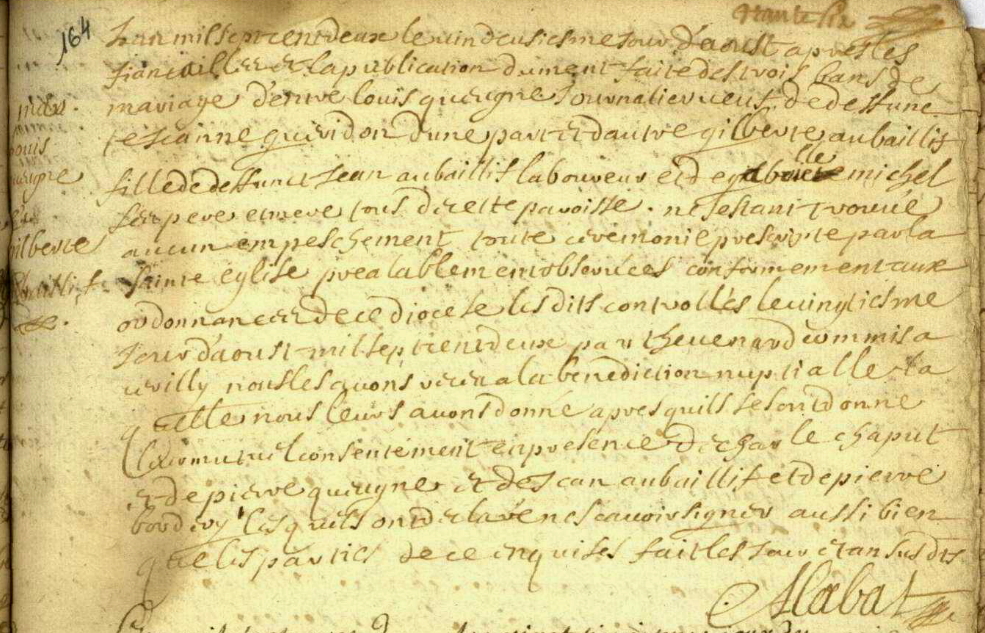 164
trante six
Lan mil sept cent deux le vin deusiesme Jour d'aoust apres les
fiancailles et la publication dument faite des trois bans de
mariage d'entre louis queugne Journalier veuf de deffun
te Jeanne queridon d'une part et dautre gilberte aubaillif
fille de deffunct Jean aubaillif laboureur et de michel
ses pere et mere tous de cette paroisse . ne sestant trouvé
aucun empeschement toute ceremonie prescripte par la
sainte eglise prealablement observées conformement aux
ordonnances de ce diocese les dits controllés le vingtiesme
Jour d'aoust mil sept cent deux par thevenard commis a
cerilly nous les avons receu a la benediction nuptialle la
q elle nous leurs avons donné apres quils se sont donné
leur mutuel consentement en presence de le chaput
et de pierre queugne et de Jean aubaillif et de pierre
bordery lesquels ont declaré ne scavoir signer aussi bien
que les parties de ce enquises fait les Jour et an susdits
Alabat
ilberte